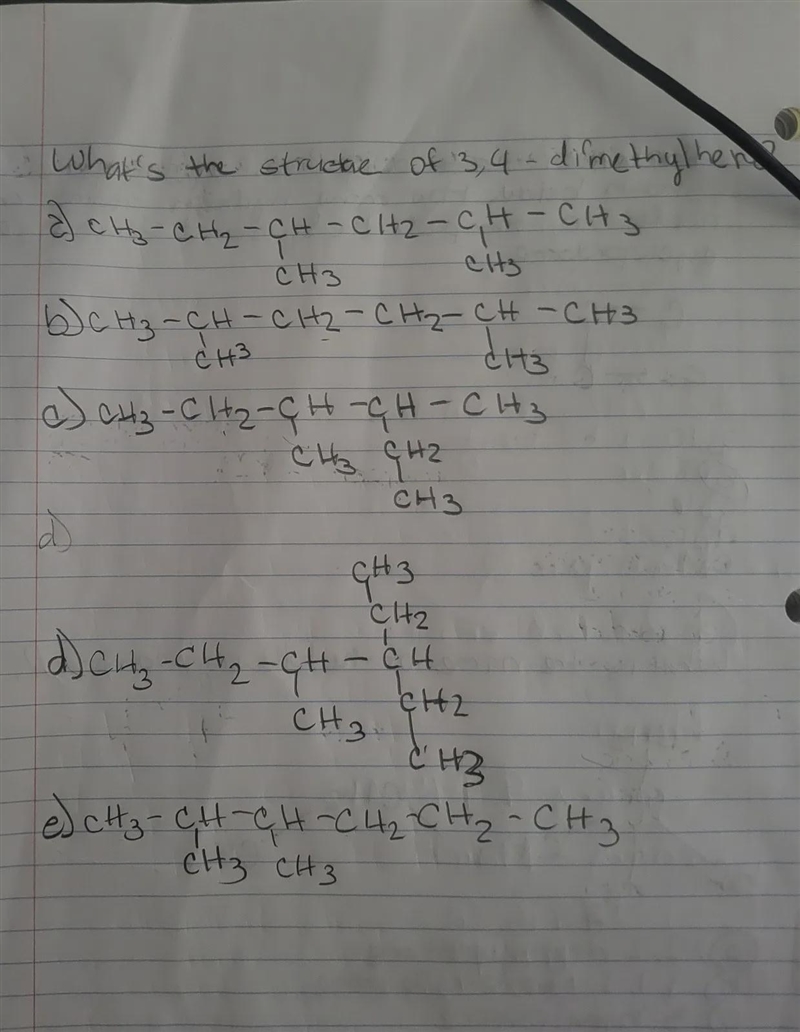 What's the structae of 3,4 - dimethylhen?
a) CH3 - CH2 - CH - CH2 - CH - CH3
CH3 CH3
b) CH3 - CH - CH2 - CH2 - CH - CH3
CH3 CH3
c) CH3 - CH2 - CH - CH - CH3
CH3 CH2
CH3
d)
CH3
CH2
d) CH3 - CH2 - CH - CH
CH3 CH2
CH3
e) CH3 - CH - CH - CH2 - CH2 - CH3
CH3 CH3